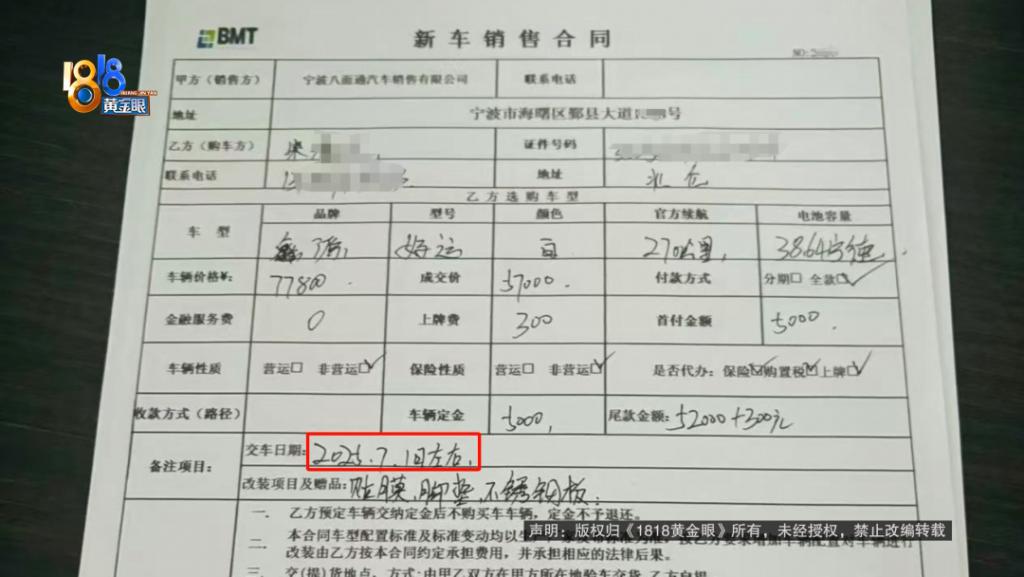 BMT
新车销售合同
NO:
1818
黄金眼
甲方（销售方） 宁波八面通汽车销售有限公司 联系电话
地址 宁波市海曙区鄞县大道 号
乙方（购车方） 证件号码
联系电话 地址 北仑
乙方选购车型
车型 品牌 型号 颜色 官方续航 电池容量
好运 白 270公里 38.64宁德
车辆价格¥: 77800 成交价 57000. 付款方式 分期□ 全款☑
金融服务费 0 上牌费 300 首付金额 5000.
车辆性质 营运□ 非营运☑ 保险性质 营运□ 非营运☑ 是否代办: 保险☑购置税☑上牌☑
收款方式（路径） 车辆定金 5000, 尾款金额: 52000+300元
备注项目: 交车日期: 2025.7.1日左右.
改装项目及赠品: 贴膜、脚垫、不锈钢板.
一、 乙方预定车辆交纳定金后不购买车车辆，定金不予退还。
二、 本合同车型配置标准及标准变动均以
改装由乙方按本合同约定承担费用，并承担相应的法律后果。
三、 交(提)货地点、方式:由甲乙双方在甲方所在地验车交货,乙方自提
声明：版权归《1818黄金眼》所有，未经授权，禁止改编转载